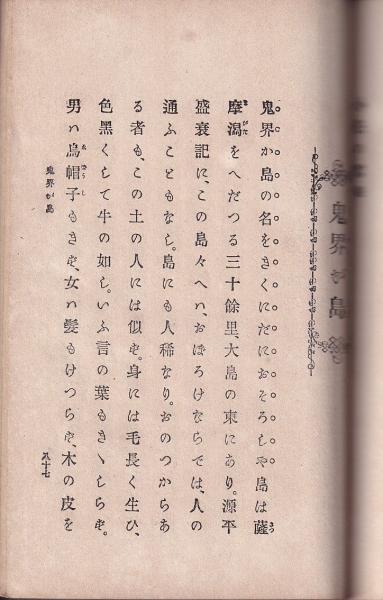 鬼界が島
鬼界か島の名をきくにだにおそろしや島は薩
摩潟をへだつる三十餘里大島の東にあり。源平
盛衰記に、この島々へハ、おぼろけならでは、人の
通ふこともなし。島にも人稀なり。おのつからあ
る者も、この土の人には似ず。身には毛長く生ひ、
色黒くして牛の如し。いふ言の葉もきゝしらず。
男ハ烏帽子もきず、女ハ髪もけつらず、木の皮を
鬼界が島
八十七